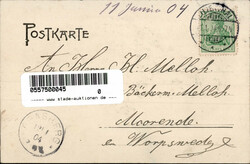 11 Juni 04
POSTKARTE
An Herrn H. Melloh.
Bäckerm. Melloh.
Moorende.
Worpswede
0557500045
0
www.stade-auktionen.de
04